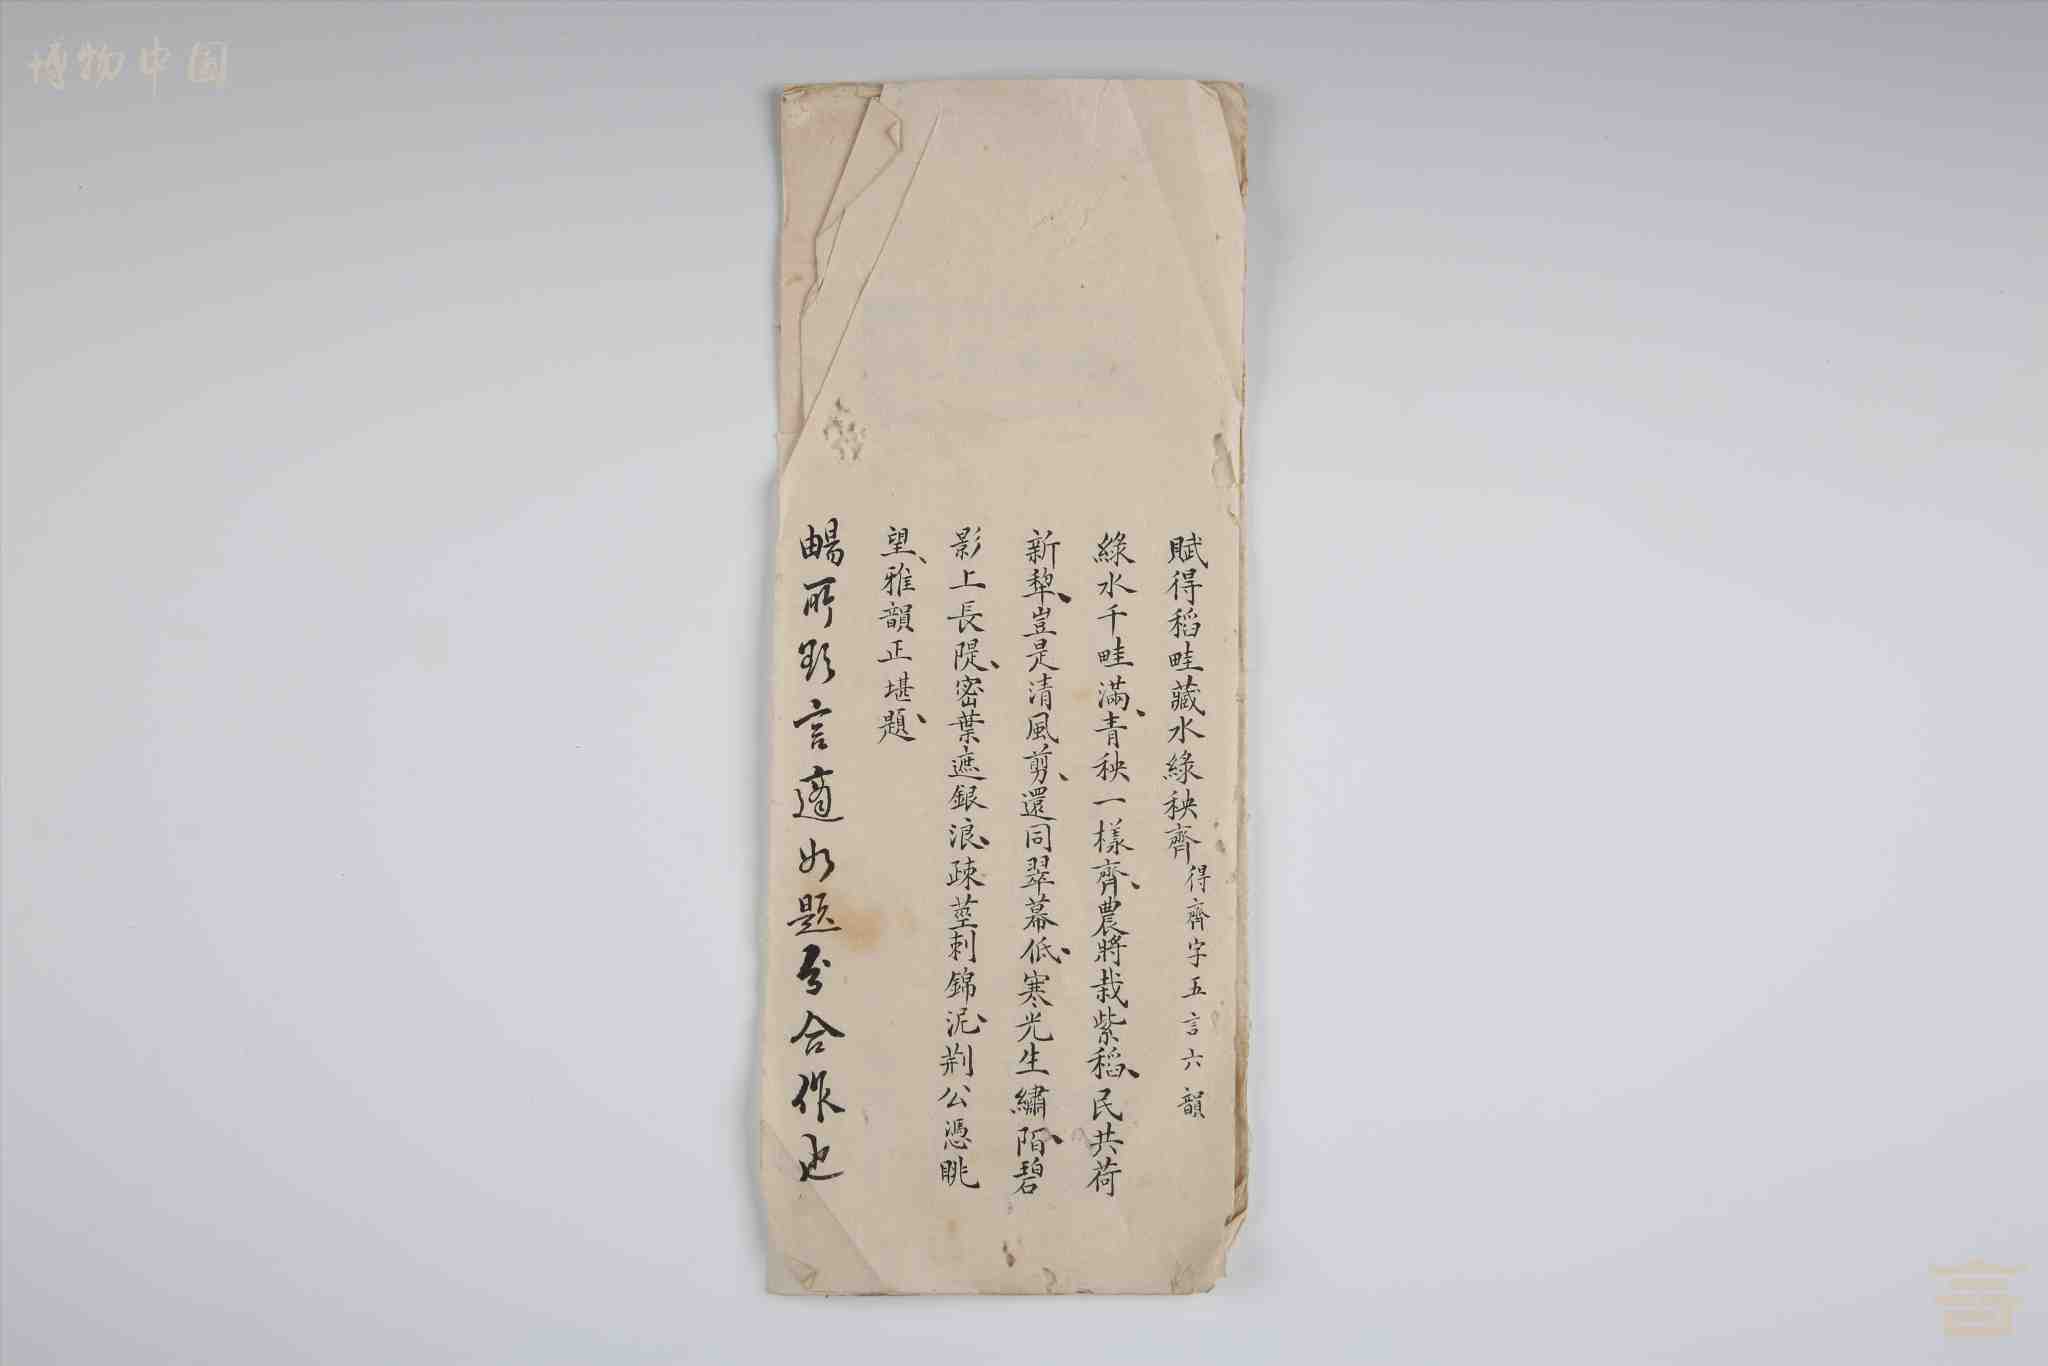 博物中国
賦得稻畦藏水綠秧齊 得齊字五言六韻
綠水千畦滿、青秧一樣齊、農將栽紫稻、民共荷
新犂、豈是清風剪、還同翠幕低、寒光生繡陌、碧
影上長隄、密葉遮銀浪、疎莖刺錦泥、荆公憑眺
望、雅韻正堪題、
暢所欲言適如題分合作也